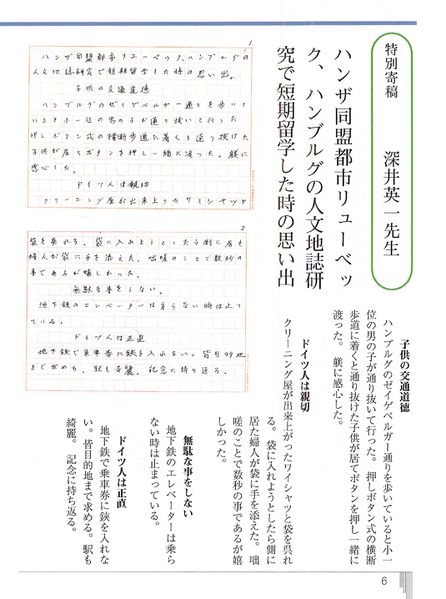 特別寄稿　深井英一先生
ハンザ同盟都市リューベッ
ク、ハンブルグの人文地誌研
究で短期留学した時の思い出
1
ハンザ同盟都市リューベック、ハンブルグの
人文地誌研究で短期留学した時の思い出。
子供の交通道徳
ハンブルグのゼイゲベルガー通りを歩いて
いると小一位の男の子が通り抜いて行った
押しボタン式の横断歩道に着くと通り抜けた
子供が居てボタンを押し一緒に渡った。躾に
感心した。
ドイツ人は親切
クリーニング屋が出来上ったワイシャツと
2
袋を呉れる。袋に入れようとしたら側に居た
婦人が袋に手を添えた。咄嗟のことで数秒の
事であるが嬉しかった。
無駄な事をしない。
地下鉄のエレベーターは乗らない時は止っ
ている。
ドイツ人は正直
地下鉄で乗車券に鋏を入れない。皆目的地
まで求める。駅も奇麗。記念に持ち返る。
子供の交通道徳
ハンブルグのゼイゲベルガー通りを歩いていると小一
位の男の子が通り抜いて行った。押しボタン式の横断
歩道に着くと通り抜けた子供が居てボタンを押し一緒に
渡った。躾に感心した。
ドイツ人は親切
クリーニング屋が出来上がったワイシャツと袋を呉れ
る。袋に入れようとしたら側に
居た婦人が袋に手を添えた。咄
嗟のことで数秒の事であるが嬉
しかった。
無駄な事をしない
地下鉄のエレベーターは乗ら
ない時は止まっている。
ドイツ人は正直
地下鉄で乗車券に鋏を入れな
い。皆目的地まで求める。駅も
綺麗。記念に持ち返る。
6